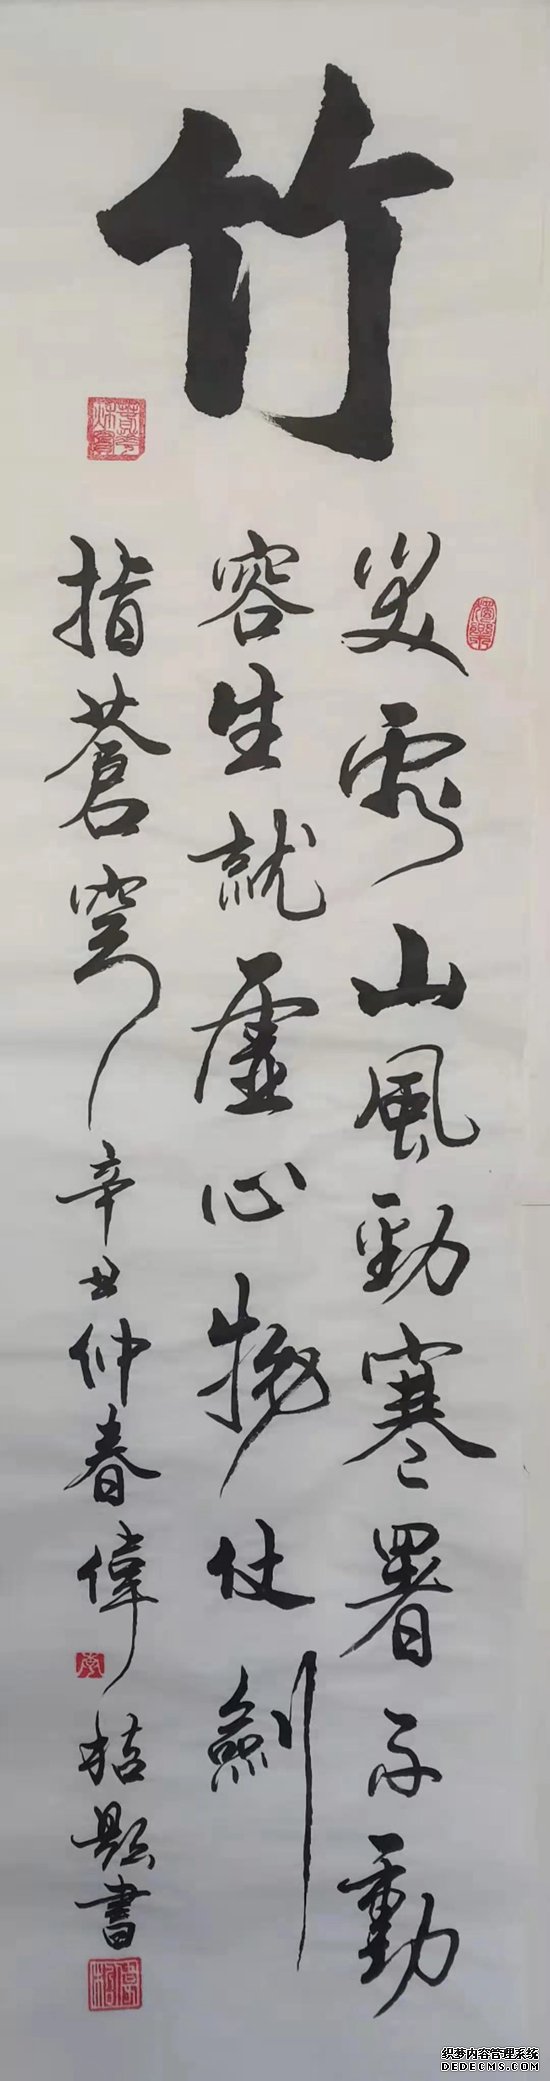 竹
笑看山風勁寒署不動
容生就虛心物仗劍
指蒼穹 辛丑仲春偉 題書
织梦内容管理系统
DEDECMS.COM